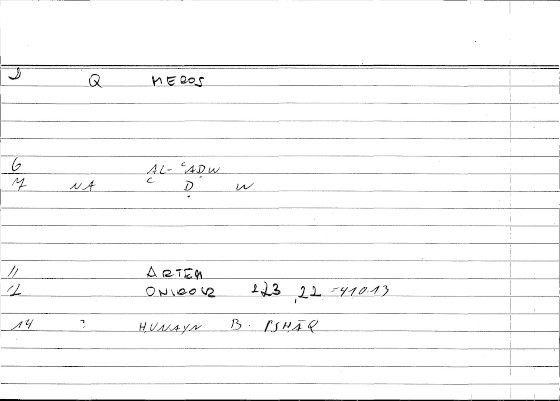 Q MEROS
6 AL-ʿAḌW
7 NA ʿ Ḍ W
11 ARTEM
12 ONIROCR 123,22 = 410 13
14 : HUNAYN B. ISHĀQ